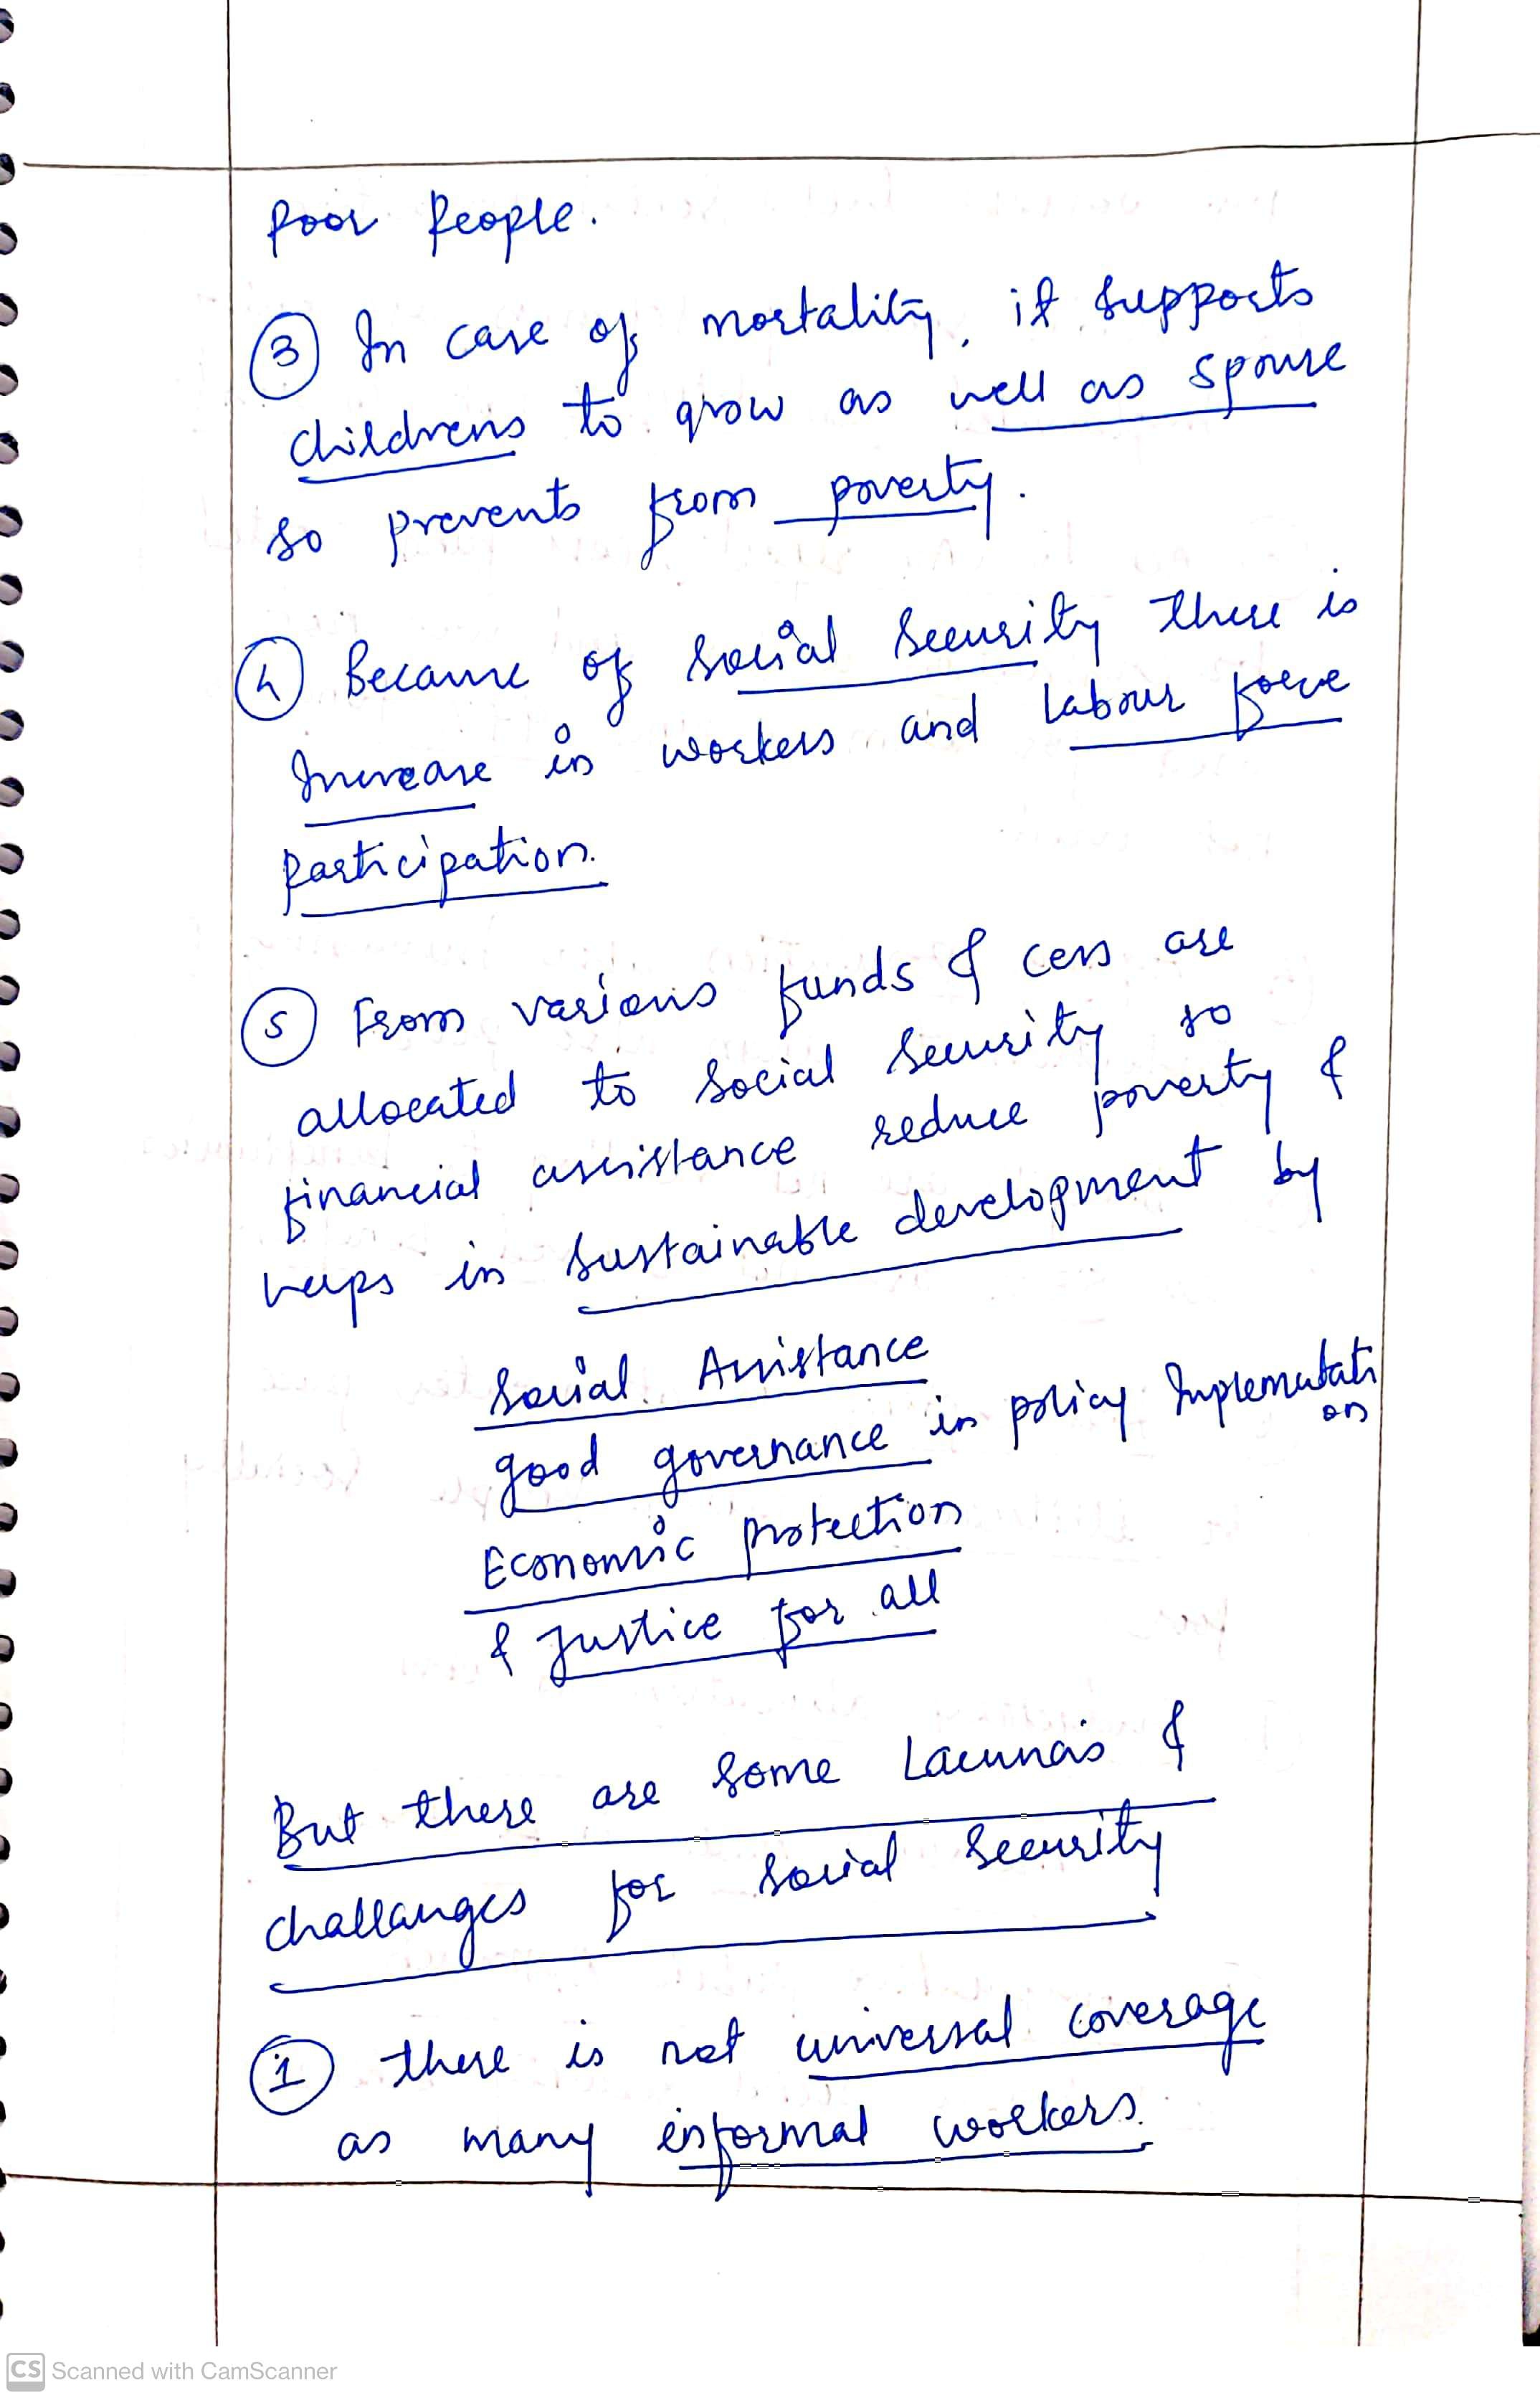 poor people.
③ In case of mortality, it supports
childrens to grow as well as spouse
so prevents from poverty.
④ Because of social security there is
Increase in workers and labour force
participation.
⑤ From various funds & cess are
allocated to social security so
financial assistance reduce poverty &
helps in sustainable development by
Social Assistance
good governance in policy Implementati
on
Economic protection
& Justice for all
But there are some Lacunas &
challanges for social security
① there is not universal coverage
as many informal workers.
CS Scanned with CamScanner